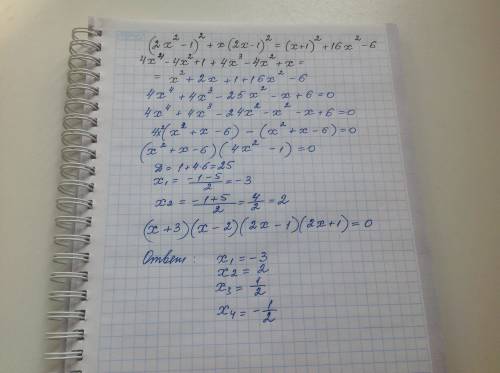 (2x² - 1)² + x(2x - 1)² = (x+1)² + 16x² - 6
4x⁴ - 4x² + 1 + 4x³ - 4x² + x =
= x² + 2x + 1 + 16x² - 6
4x⁴ + 4x³ - 25x² - x + 6 = 0
4x⁴ + 4x³ - 24x² - x² - x + 6 = 0
4x²(x² + x - 6) - (x² + x - 6) = 0
(x² + x - 6)(4x² - 1) = 0
D = 1 + 4·6 = 25
x₁ = (-1-5)/2 = -3
x₂ = (-1+5)/2 = 4/2 = 2
(x+3)(x-2)(2x-1)(2x+1) = 0
Ответ: x₁ = -3
x₂ = 2
x₃ = 1/2
x₄ = -1/2